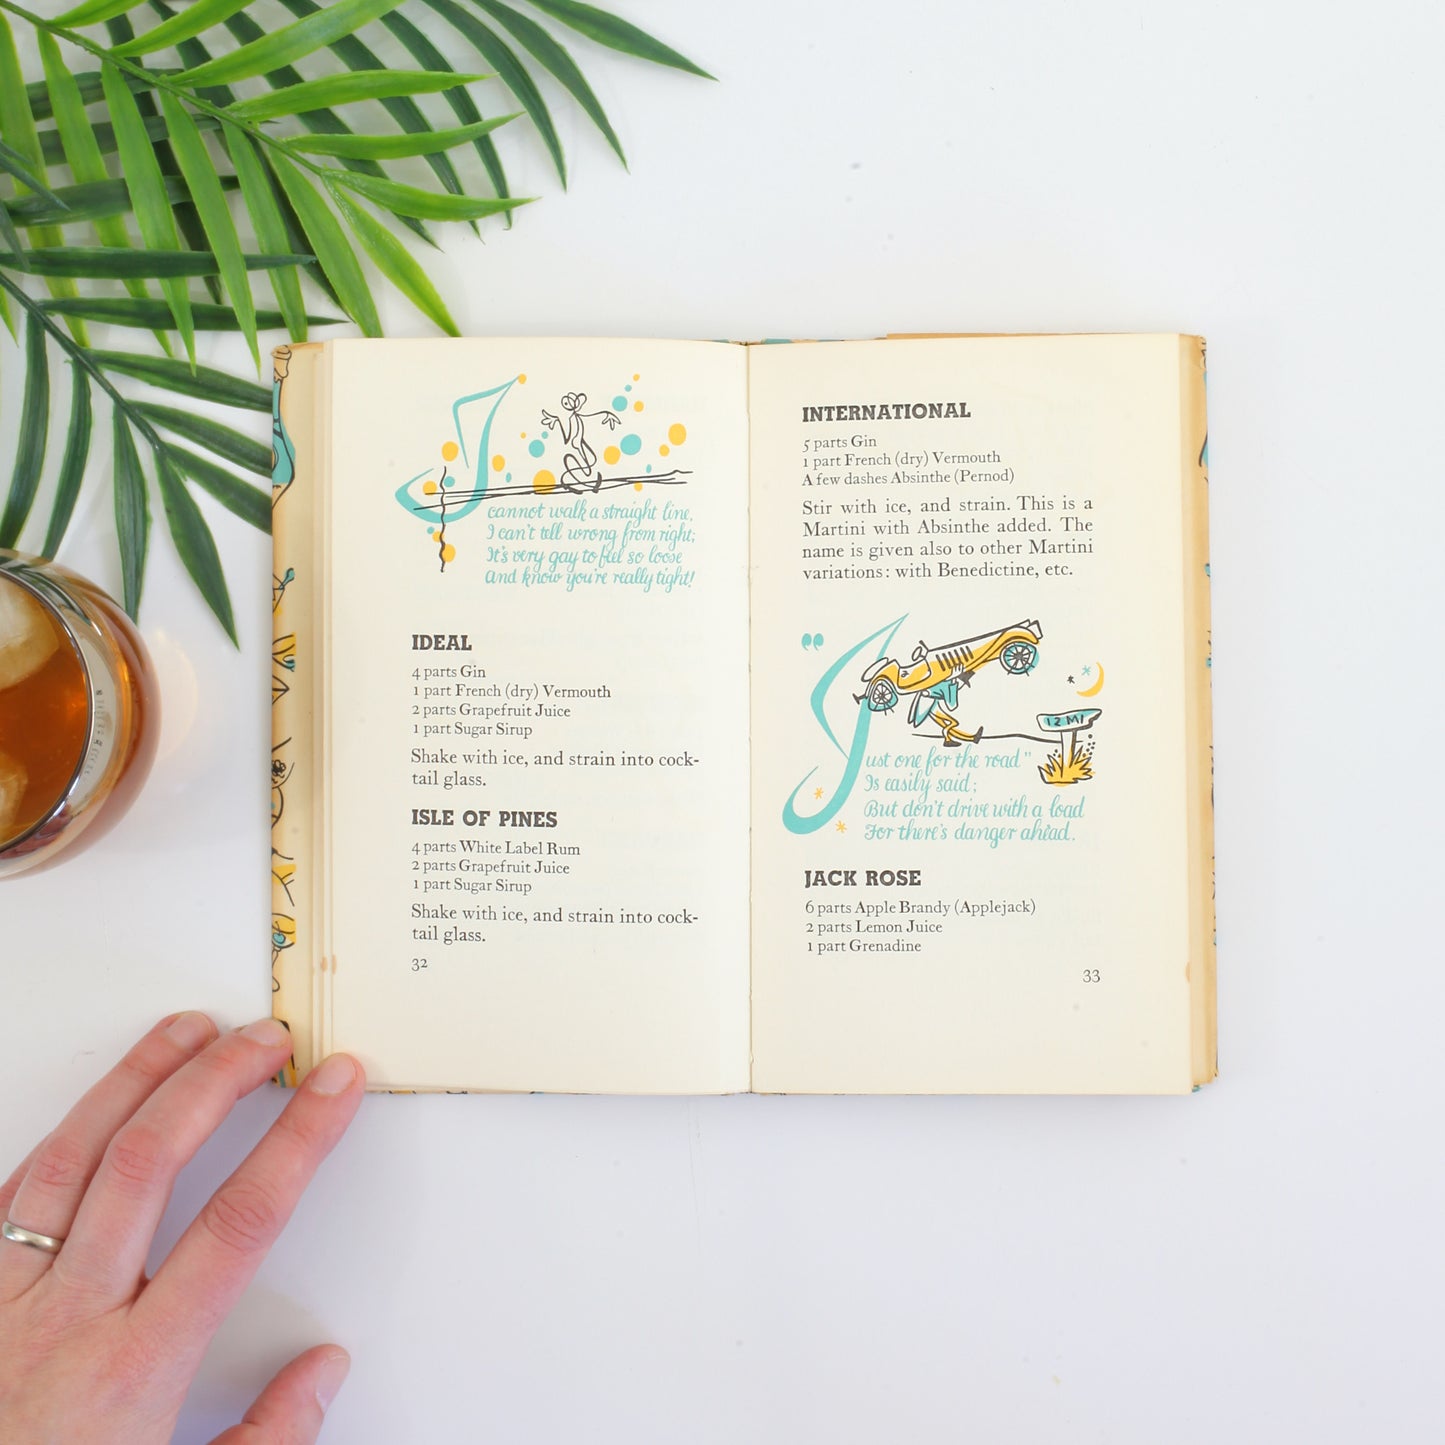 I
cannot walk a straight line,
I can't tell wrong from right;
It's very gay to feel so loose
And know you're really tight!
IDEAL
4 parts Gin
1 part French (dry) Vermouth
2 parts Grapefruit Juice
1 part Sugar Sirup
Shake with ice, and strain into cock-
tail glass.
ISLE OF PINES
4 parts White Label Rum
2 parts Grapefruit Juice
1 part Sugar Sirup
Shake with ice, and strain into cock-
tail glass.
32
INTERNATIONAL
5 parts Gin
1 part French (dry) Vermouth
A few dashes Absinthe (Pernod)
Stir with ice, and strain. This is a
Martini with Absinthe added. The
name is given also to other Martini
variations: with Benedictine, etc.
12 MI
"Just one for the road"
Is easily said;
But don't drive with a load
For there's danger ahead.
JACK ROSE
6 parts Apple Brandy (Applejack)
2 parts Lemon Juice
1 part Grenadine
33